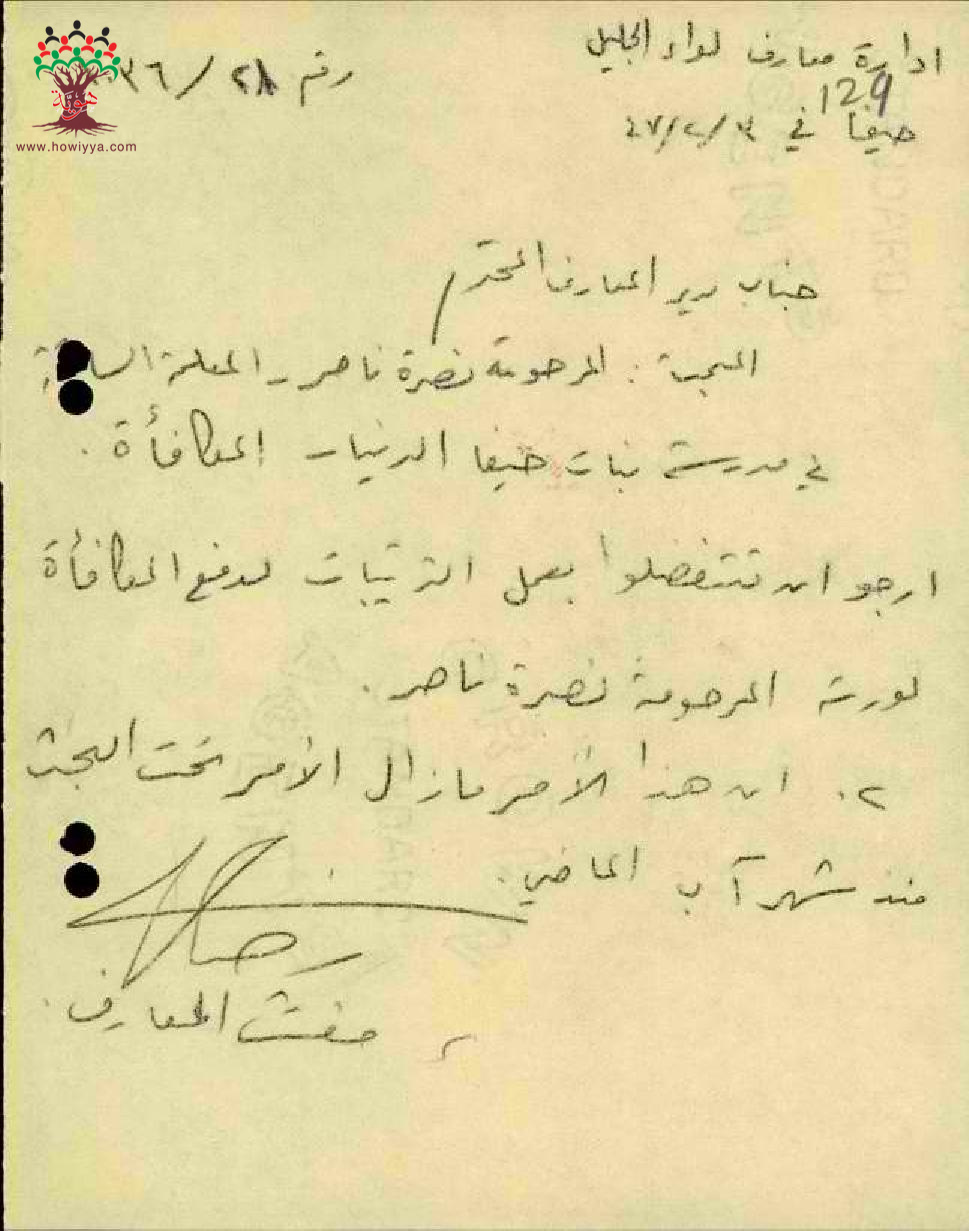 ادارة معارف لواء الجليل
رقم ٣٦/٢٨
129
حيفا في ٣/٢/٤٧
هوية
www.howiyya.com
جناب مدير المعارف المحترم
المبحث : المرحومة نصرة ناصر - المعلمة السابقة
في مدرسة بنات حيفا المكافأة .
ارجو ان تتفضلوا بعمل الترتيبات لدفع المكافأة
لورثة المرحومة نصرة ناصر .
٢. ان هذا الأمر مازال الأمر تحت البحث
منذ شهر آب الماضي .
مفتش المعارف .